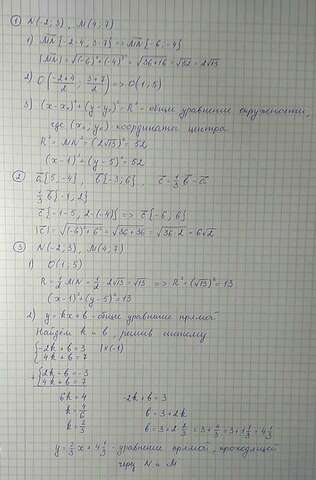 ① N(-2;3), M(4;7)
1) M̅N̅{-2-4, 3-7} => M̅N̅{-6;-4}
|M̅N̅| = √(-6)²+(-4)² = √36+16 = √52 = 2√13
2) O(-2+4/2; 3+7/2) => O(1;5)
3) (x-x₀)²+(y-y₀)²=R² - общее уравнение окружности,
где (x₀;y₀) координаты центра
R² = MN² = (2√13)² = 52
(x-1)²+(y-5)²=52
② a̅{5;-4}, b̅{-3;6}, c̅=1/3 b̅-a̅
1/3 b̅{-1;2}
c̅{-1-5, 2-(-4)} => c̅{-6;6}
|c̅| = √(-6)²+6² = √36+36 = √36·2 = 6√2
③ N(-2;3), M(4;7)
1) O(1;5)
R = 1/2 MN = 1/2 · 2√13 = √13 => R² = (√13)² = 13
(x-1)²+(y-5)²=13
2) y=kx+b - общее уравнение прямой
Найдем k и b, решив систему
{-2k+b=3 |×(-1)
4k+b=7
{2k-b=-3
4k+b=7
6k=4 -2k+b=3
k=4/6 b=3+2k
k=2/3 b=3+2·2/3=3+4/3=3+1 1/3=4 1/3
y=2/3x+4 1/3 - уравнение прямой, проходящей
через N и M